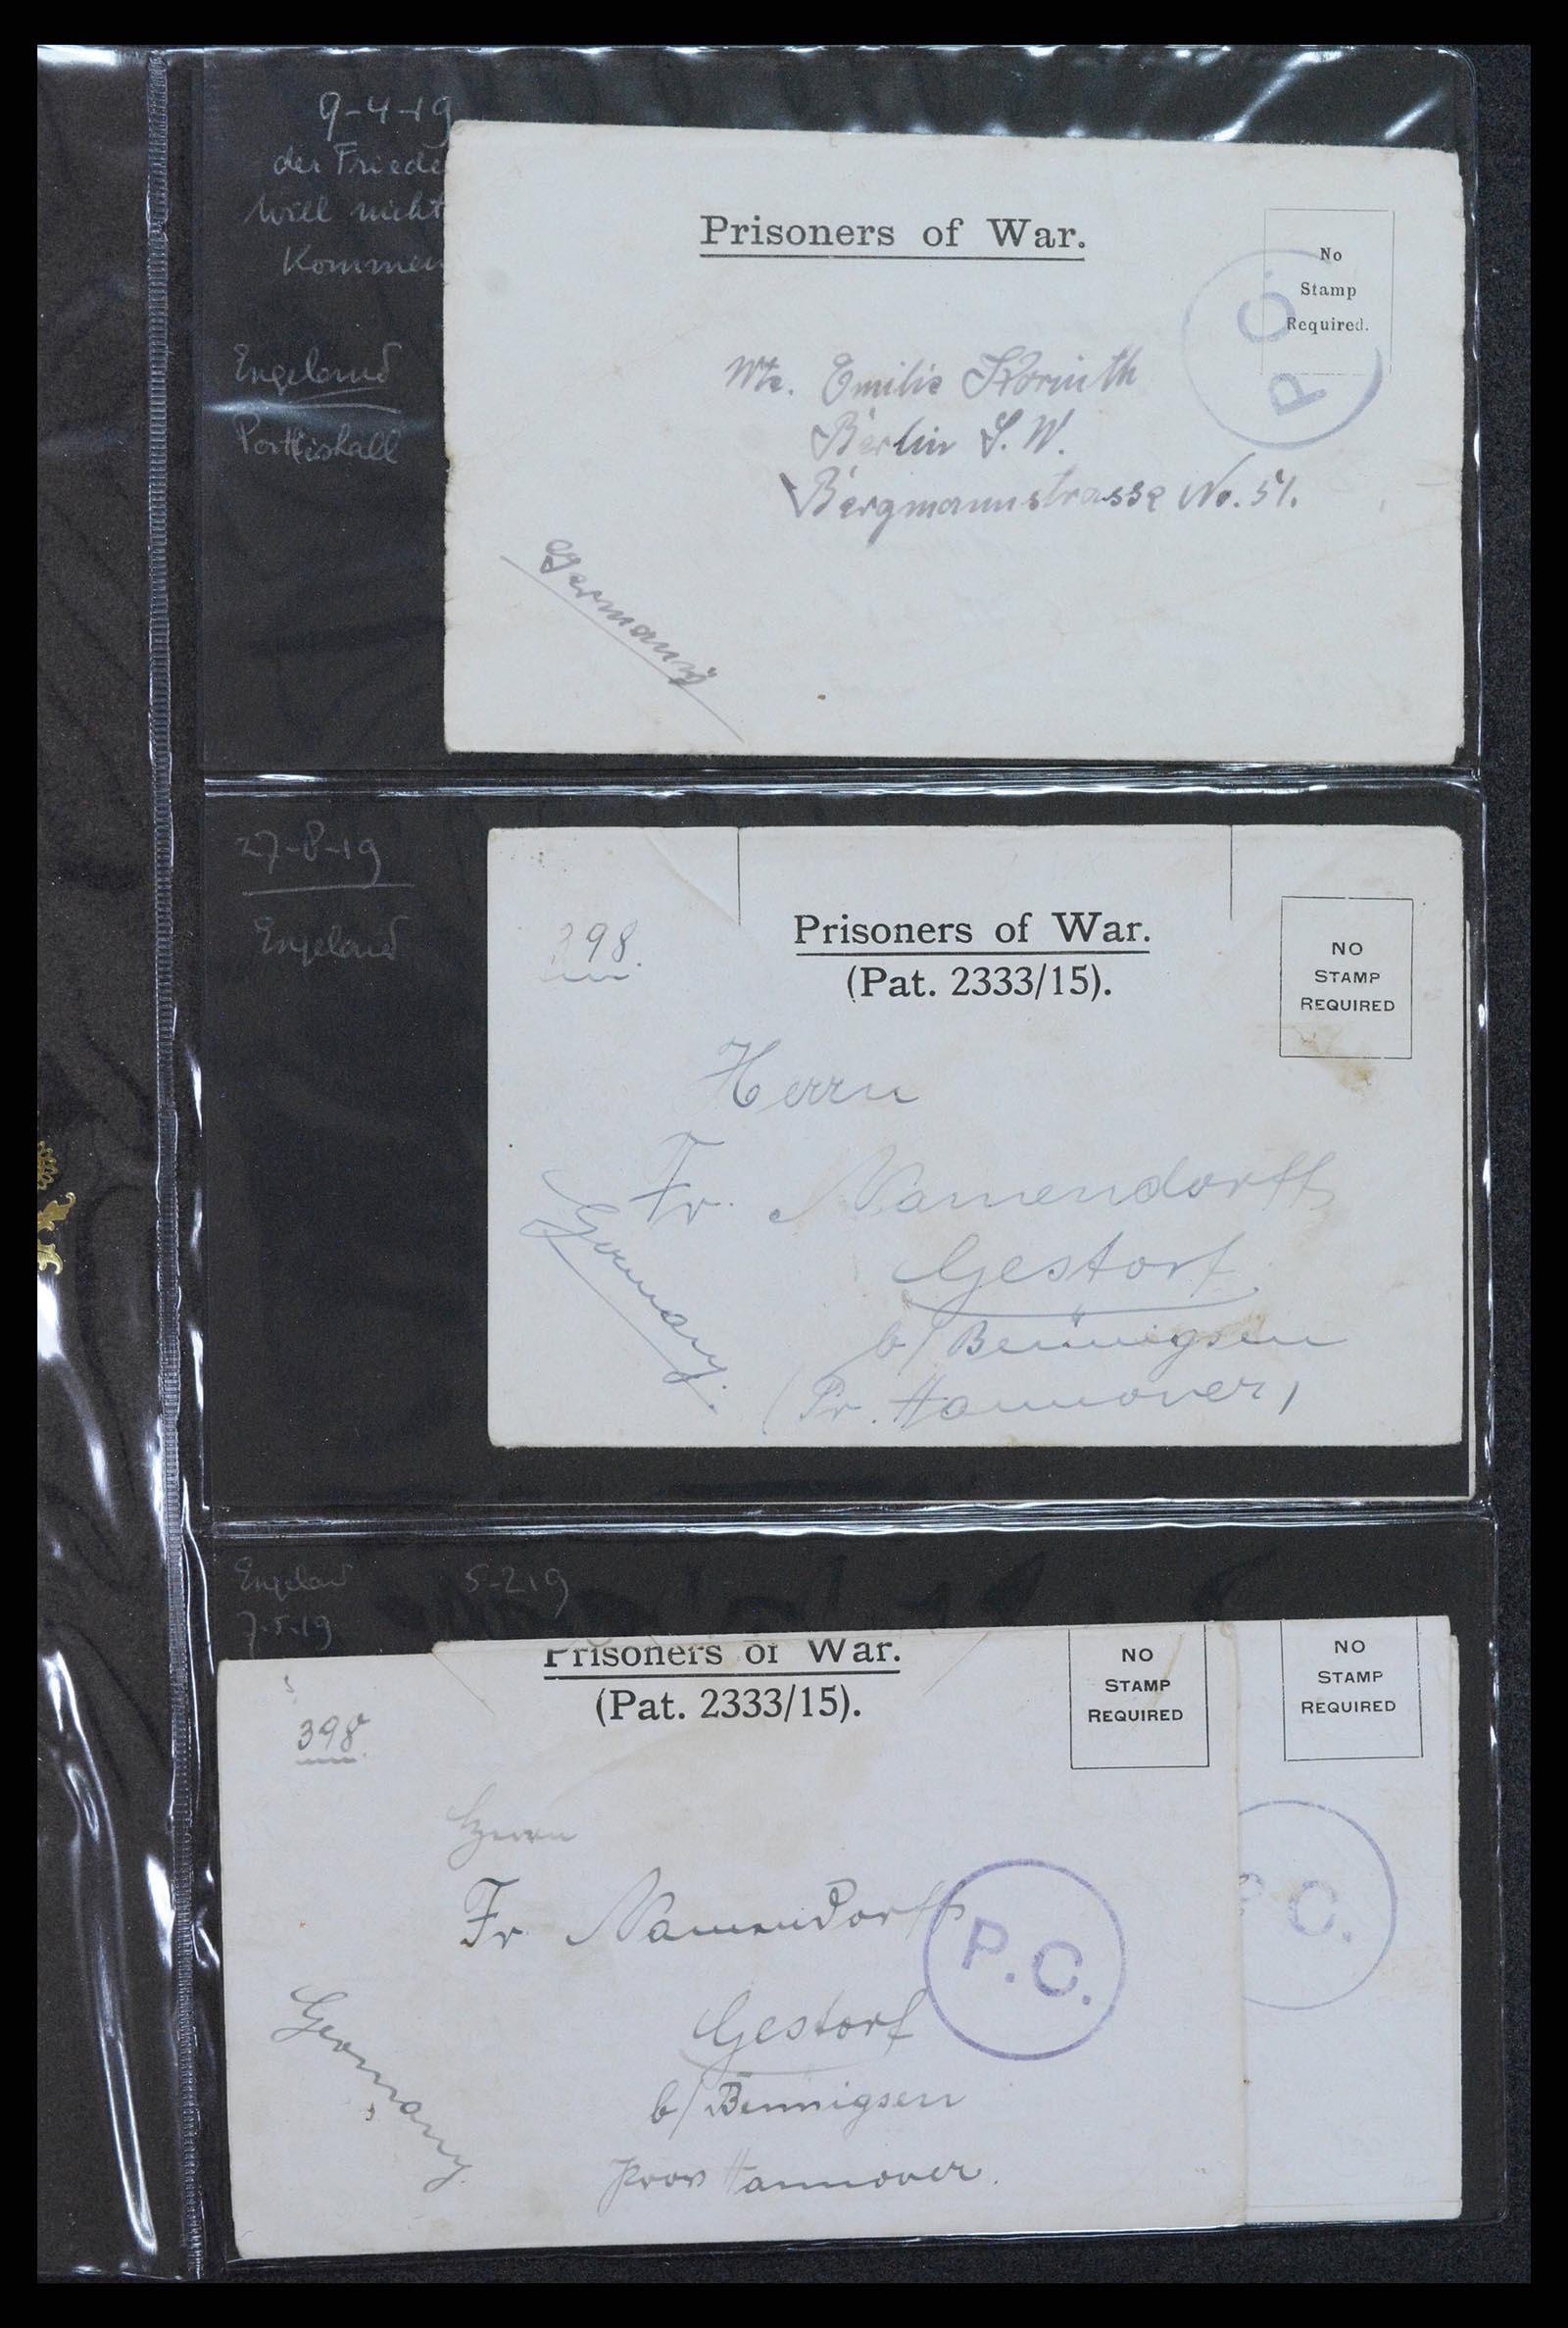 9-4-19
der Friede
will nicht
Kommen
Engeland
Prisoners of War.
No
Stamp
Required.
P.C.
Emilie
Berlin S.W.
Bergmannstrasse No. 51.
Germany
27-8-19
Engeland
398.
Prisoners of War.
(Pat. 2333/15).
NO
STAMP
REQUIRED
Herrn
Fr. Namendorff
Gestorf
b/ Bennigsen
(Pr. Hannover)
Germany.
Engeland
5-2-19
7-5-19
Prisoners of War.
(Pat. 2333/15).
NO
STAMP
REQUIRED
NO
STAMP
REQUIRED
398.
Herrn
Fr. Namendorff
P.C.
C.
Gestorf
b/ Bennigsen
Prov Hannover.
Germany.